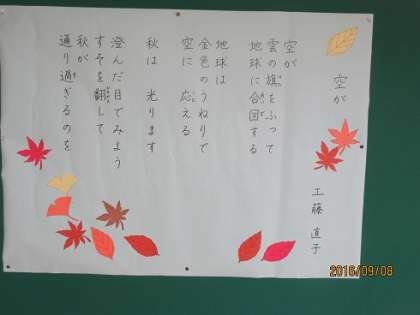 空が
工藤 直子
空が
雲の旗をふって
地球に合図する
地球は
金色のうねりで
空に 応える
秋は 光ります
澄んだ目でみよう
すそを翻して
秋が
通り過ぎるのを
2016/09/08